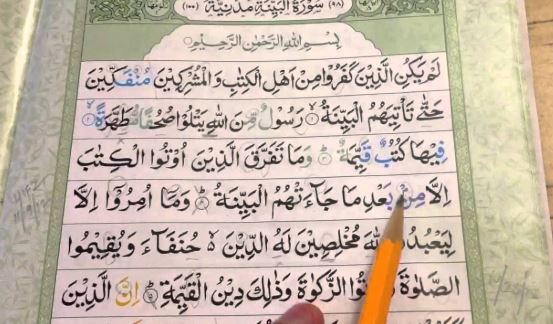 (٩٨) سُوْرَةُ الْبَيِّنَةِ مَدَنِيَّةٌ (١٠٠)
بِسْمِ اللهِ الرَّحْمٰنِ الرَّحِيْمِ
لَمْ يَكُنِ الَّذِيْنَ كَفَرُوْا مِنْ اَهْلِ الْكِتٰبِ وَالْمُشْرِكِيْنَ مُنْفَكِّيْنَ
حَتّٰى تَاْتِيَهُمُ الْبَيِّنَةُ ۙ۱ رَسُوْلٌ مِّنَ اللهِ يَتْلُوْا صُحُفًا مُّطَهَّرَةً ۙ۲
فِيْهَا كُتُبٌ قَيِّمَةٌ ۳ وَمَا تَفَرَّقَ الَّذِيْنَ اُوْتُوا الْكِتٰبَ
اِلَّا مِنْۢ بَعْدِ مَا جَآءَتْهُمُ الْبَيِّنَةُ ۴ وَمَآ اُمِرُوْٓا اِلَّا
لِيَعْبُدُوا اللهَ مُخْلِصِيْنَ لَهُ الدِّيْنَ ۙ۬ حُنَفَآءَ وَيُقِيْمُوا
الصَّلٰوةَ وَيُؤْتُوا الزَّكٰوةَ وَذٰلِكَ دِيْنُ الْقَيِّمَةِ ۵ اِنَّ الَّذِيْنَ